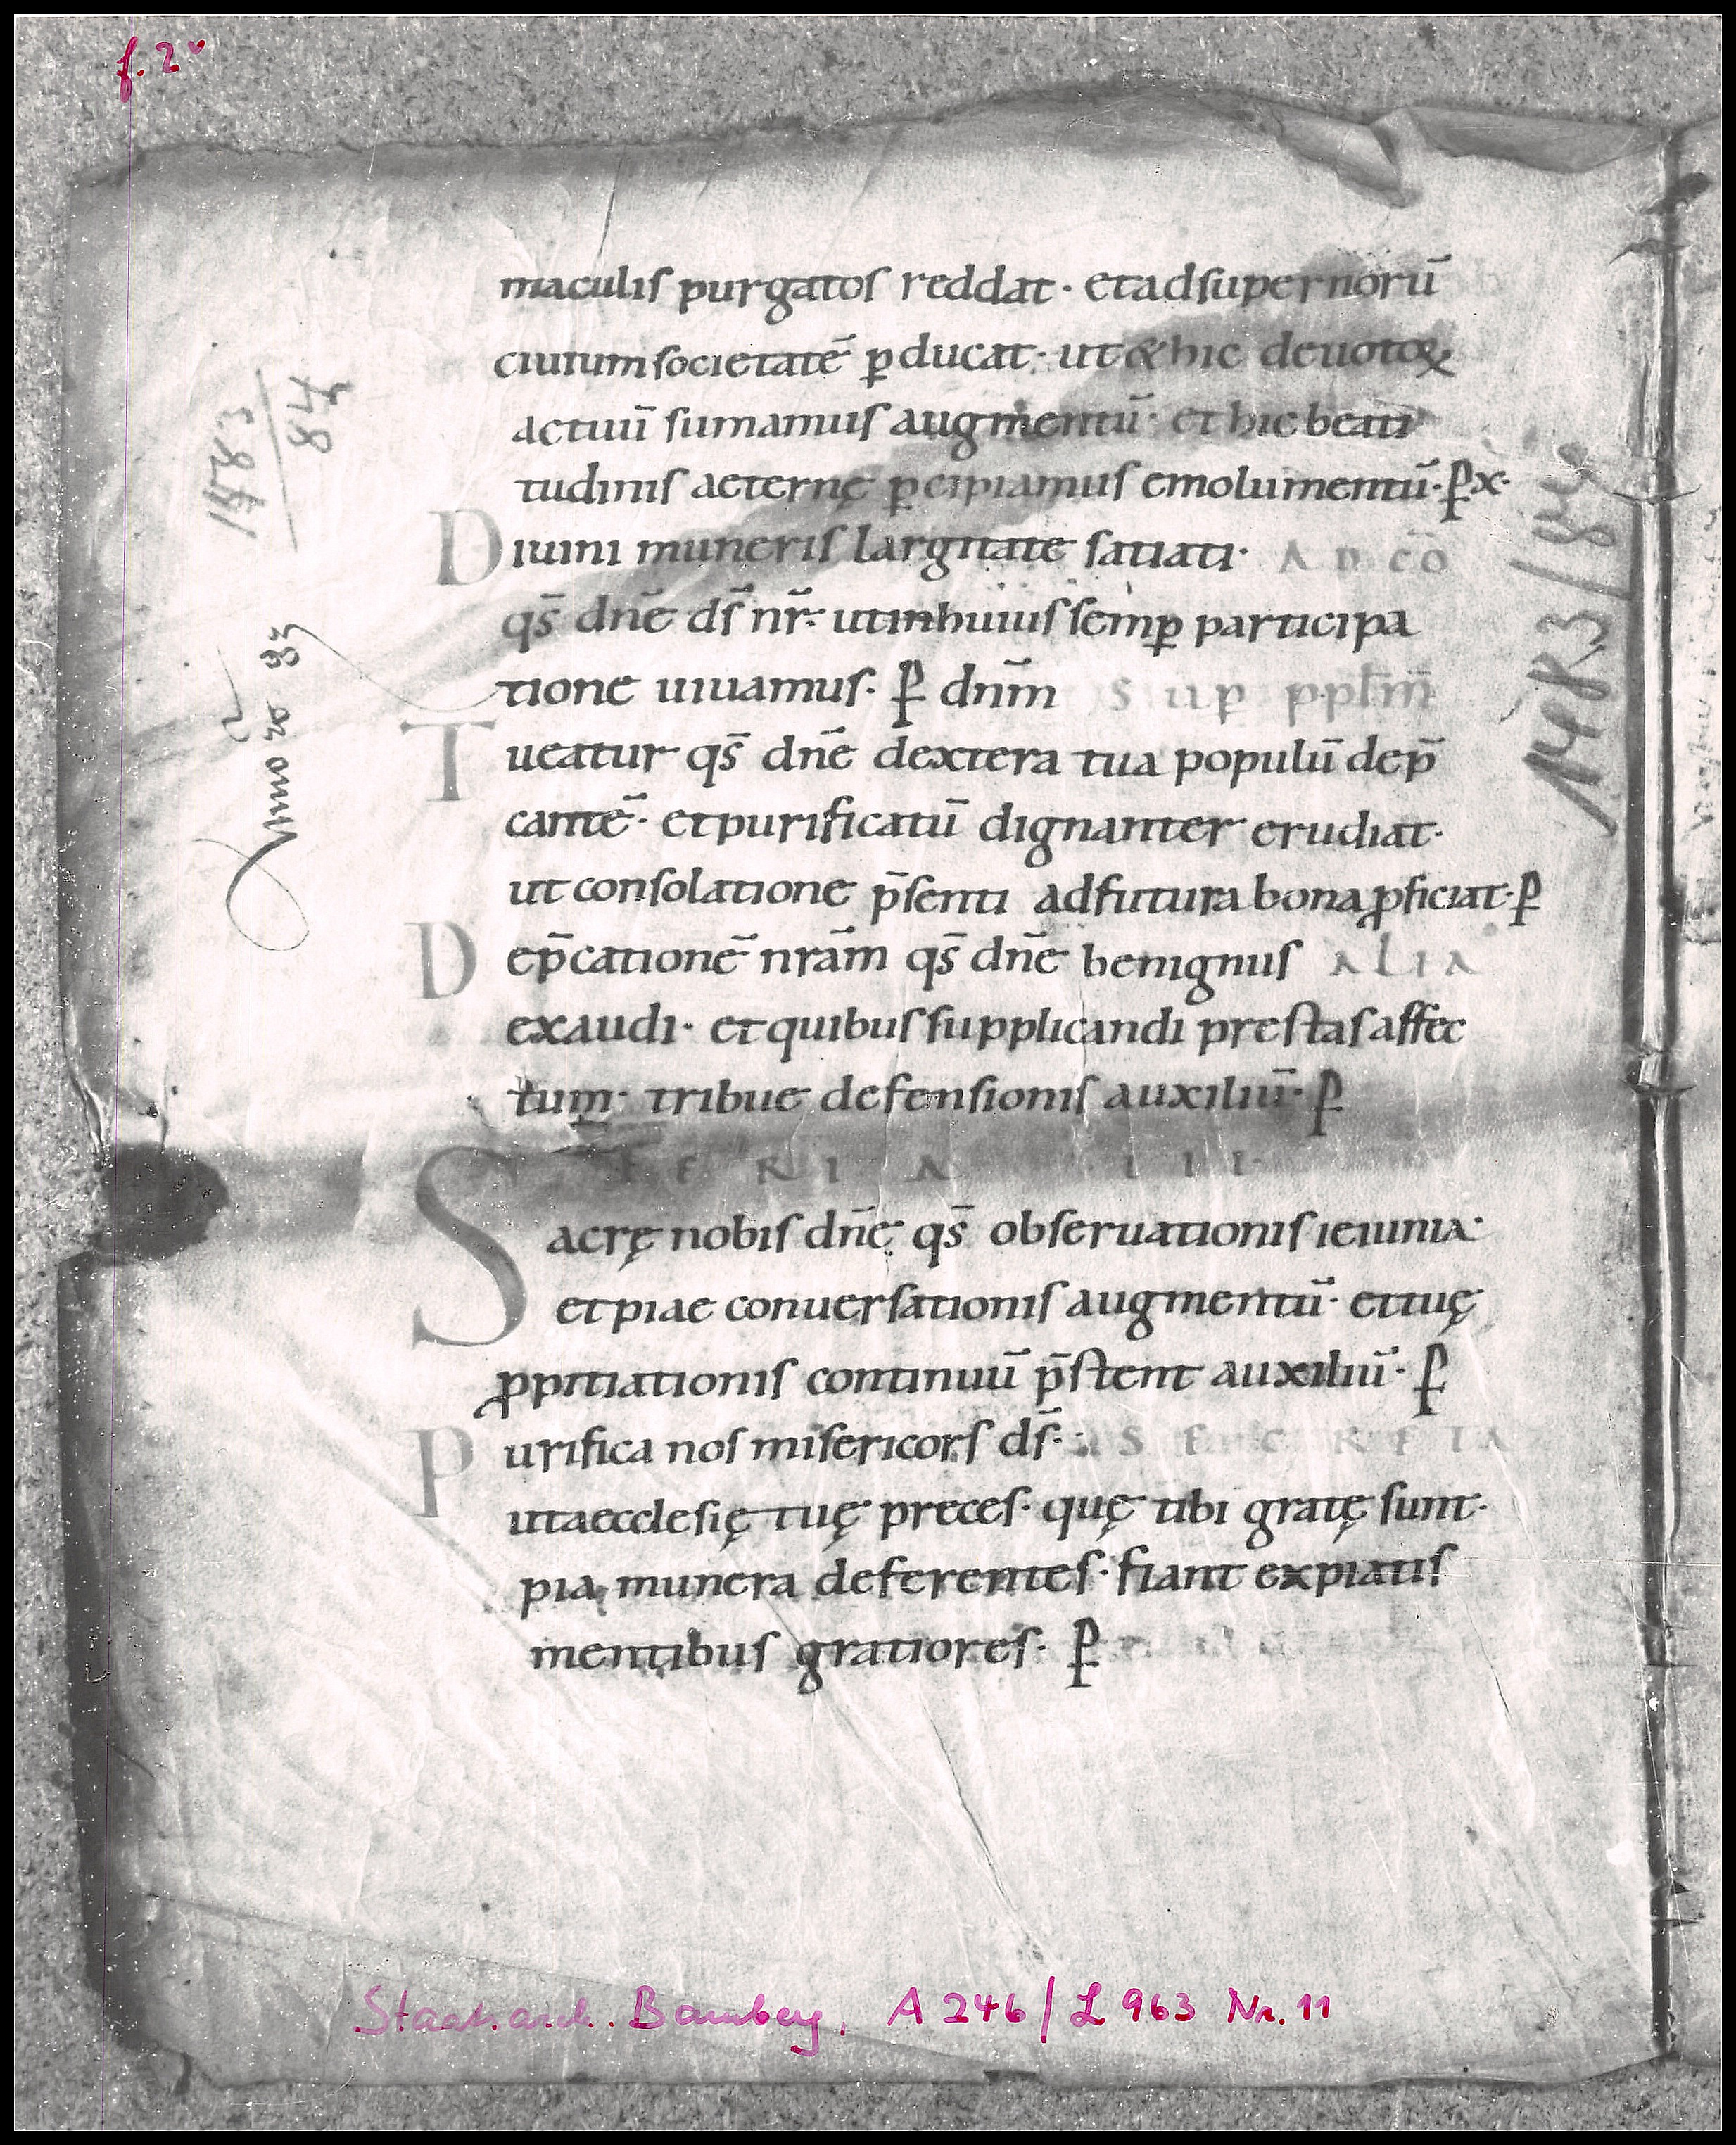 f. 2v
maculiſ purgatoſ reddat · etadſupernorū
ciuiumſocietatē ꝑducat · ut&hic deuotoꝝ
actuū ſumamuſ augmentū · et hic beati
tudiniſ aeternę ꝑcipiamuſ emolumentū · ꝑx·
Diuini muneriſ largitate ſatiati · AD CŌ
qſ̄ dn̄e dſ̄ nr̄ · utinhuiuſ ſemꝑ participa
tione uiuamuſ · ꝑ dnm̄ SUP PPLM̄
Tueatur qſ̄ dn̄e dextera tua populū dep̄
cantē · etpurificatū dignanter erudiat ·
ut conſolatione p̄ſenti adfutura bona ꝓficiat · ꝑ
Dep̄cationē nrām qſ̄ dn̄e benignuſ ALIA
exaudi · et quibuſ ſupplicandi preſtaſ affec
tum · tribue defenſioniſ auxiliū · ꝑ
FERIA III·
Sacrę nobiſ dn̄e qſ̄ obſeruationiſ ieiunia ·
etpiae conuerſationiſ augmentū · ettuę
ꝓpitiationiſ continuū p̄ſtent auxiliū · ꝑ
Purifica noſ miſericorſ dſ̄ · SECRETA
utaeccleſię tuę preceſ · quę tibi gratę ſunt ·
pia munera deferenteſ · fiant expiatiſ
mentibuſ gratioreſ · ꝑ
1483
84
Anno 83
1483/84
Staatsarch. Bamberg, A 246/L 963 Nr. 11